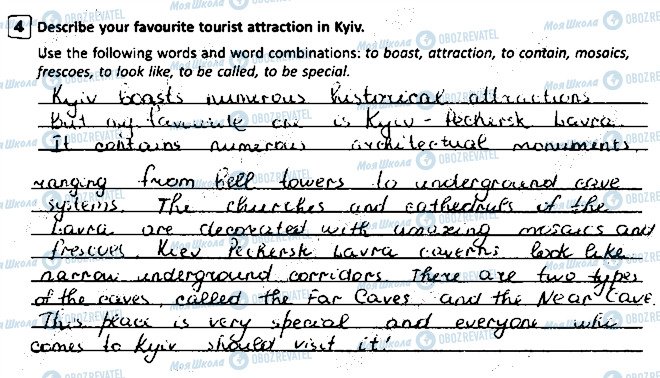 4 Describe your favourite tourist attraction in Kyiv.
Use the following words and word combinations: to boast, attraction, to contain, mosaics,
frescoes, to look like, to be called, to be special.
Kyiv boasts numerous historical attractions
But my favourite one is Kyiv - Pechersk Lavra.
It contains numerous architectural monuments,
ranging from bell towers to underground cave
systems. The churches and cathedrals of the
Lavra are decorated with amazing mosaics and
frescoes. Kiev Pechersk Lavra caverns look like
narrow underground corridors. There are two types
of the caves, called the Far Caves and the Near Cave.
This place is very special and everyone who
comes to Kyiv should visit it!
Моя Школа OBOZREVATEL